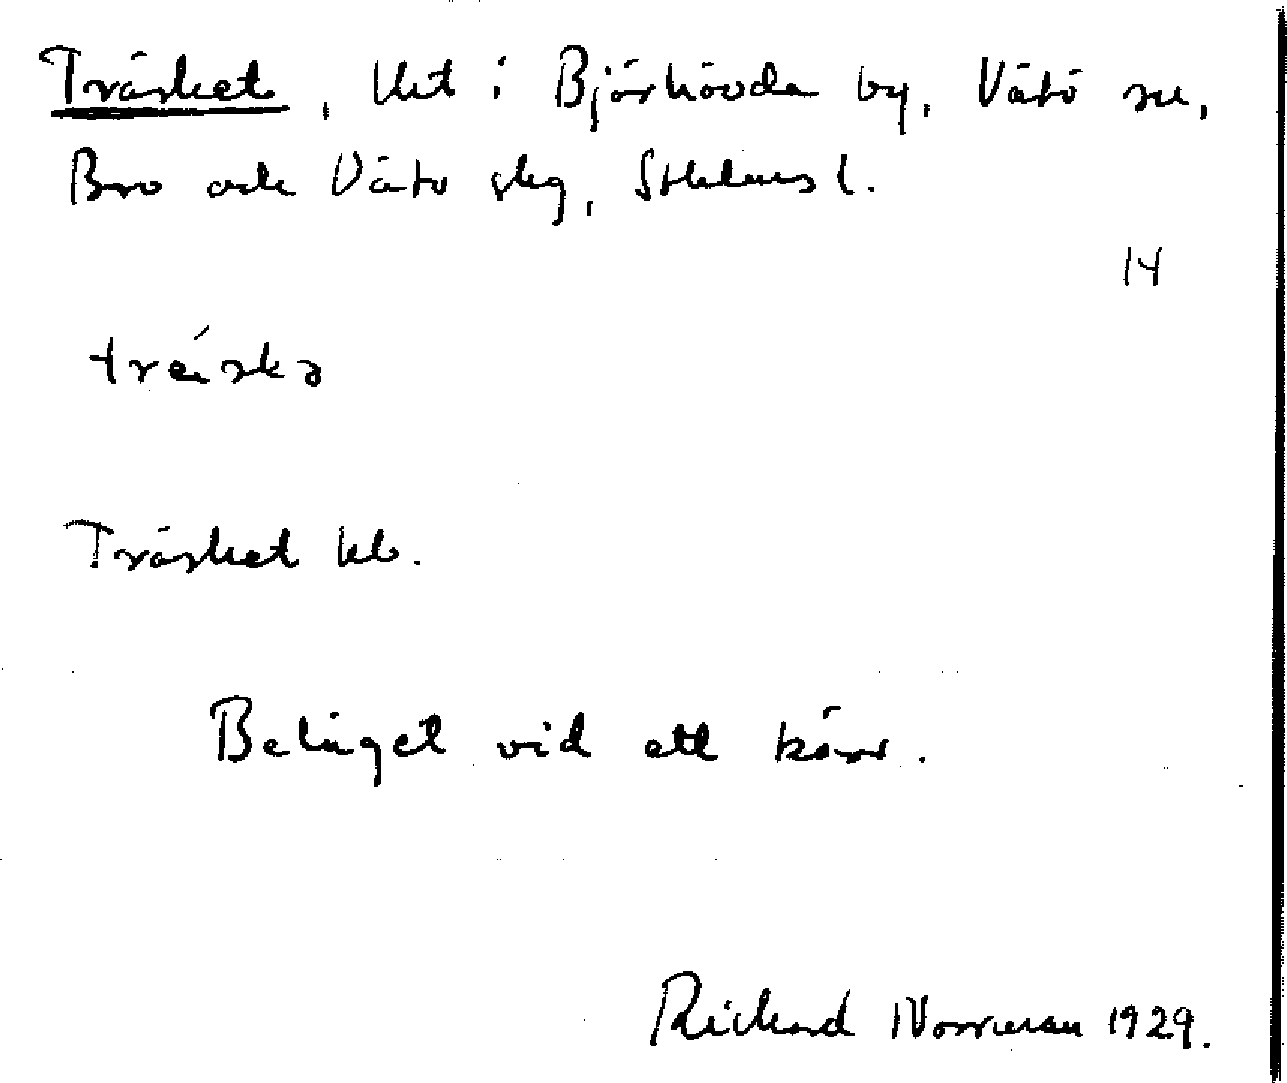 Träsket, Uet i Björkövda by, Vätö sn,
Bro och Vätö skg, Sthlms l.
14
träskə
Träsket kb.
Beläget vid ett kärr.
Rickard Norrman 1929.